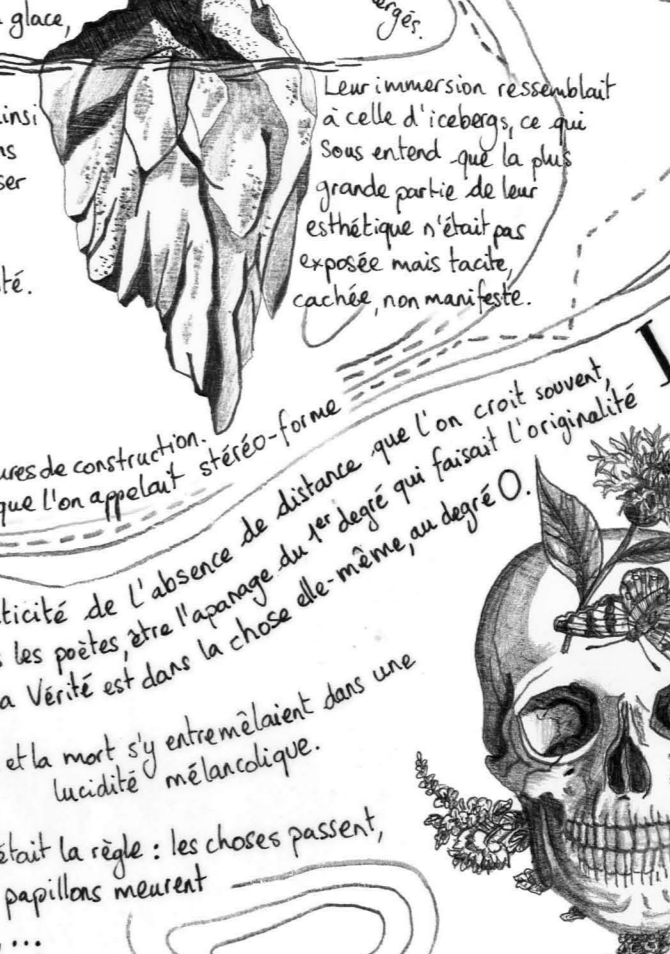 glace,
ergés.
Leur immersion ressemblait
à celle d'icebergs, ce qui
sous entend que la plus
grande partie de leur
esthétique n'était pas
exposée mais tacite,
cachée, non manifeste.
insi
ns
ser
té.
ures de construction.
que l'on appelait stéréo-forme
ticité de l'absence de distance que l'on croit souvent,
s les poètes, être l'apanage du 1er degré qui faisait l'originalité
a Vérité est dans la chose elle-même, au degré 0.
et la mort s'y entremêlaient dans une
lucidité mélancolique.
était la règle : les choses passent,
papillons meurent
, ...